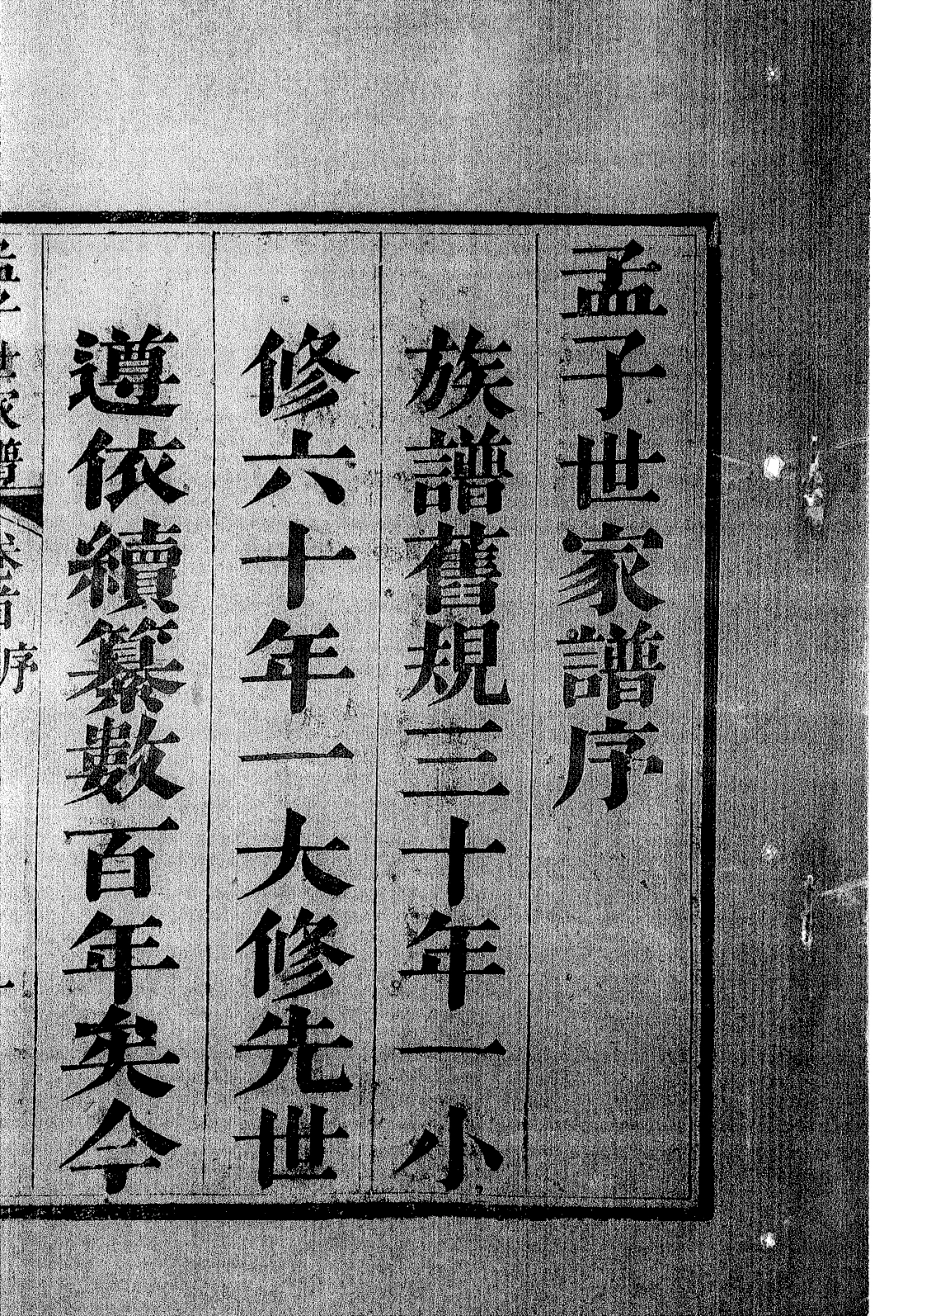 孟子世家譜序
族譜舊規三十年一小
修六十年一大修先世
遵依續纂數百年矣今
孟子世家譜 卷首 序 一